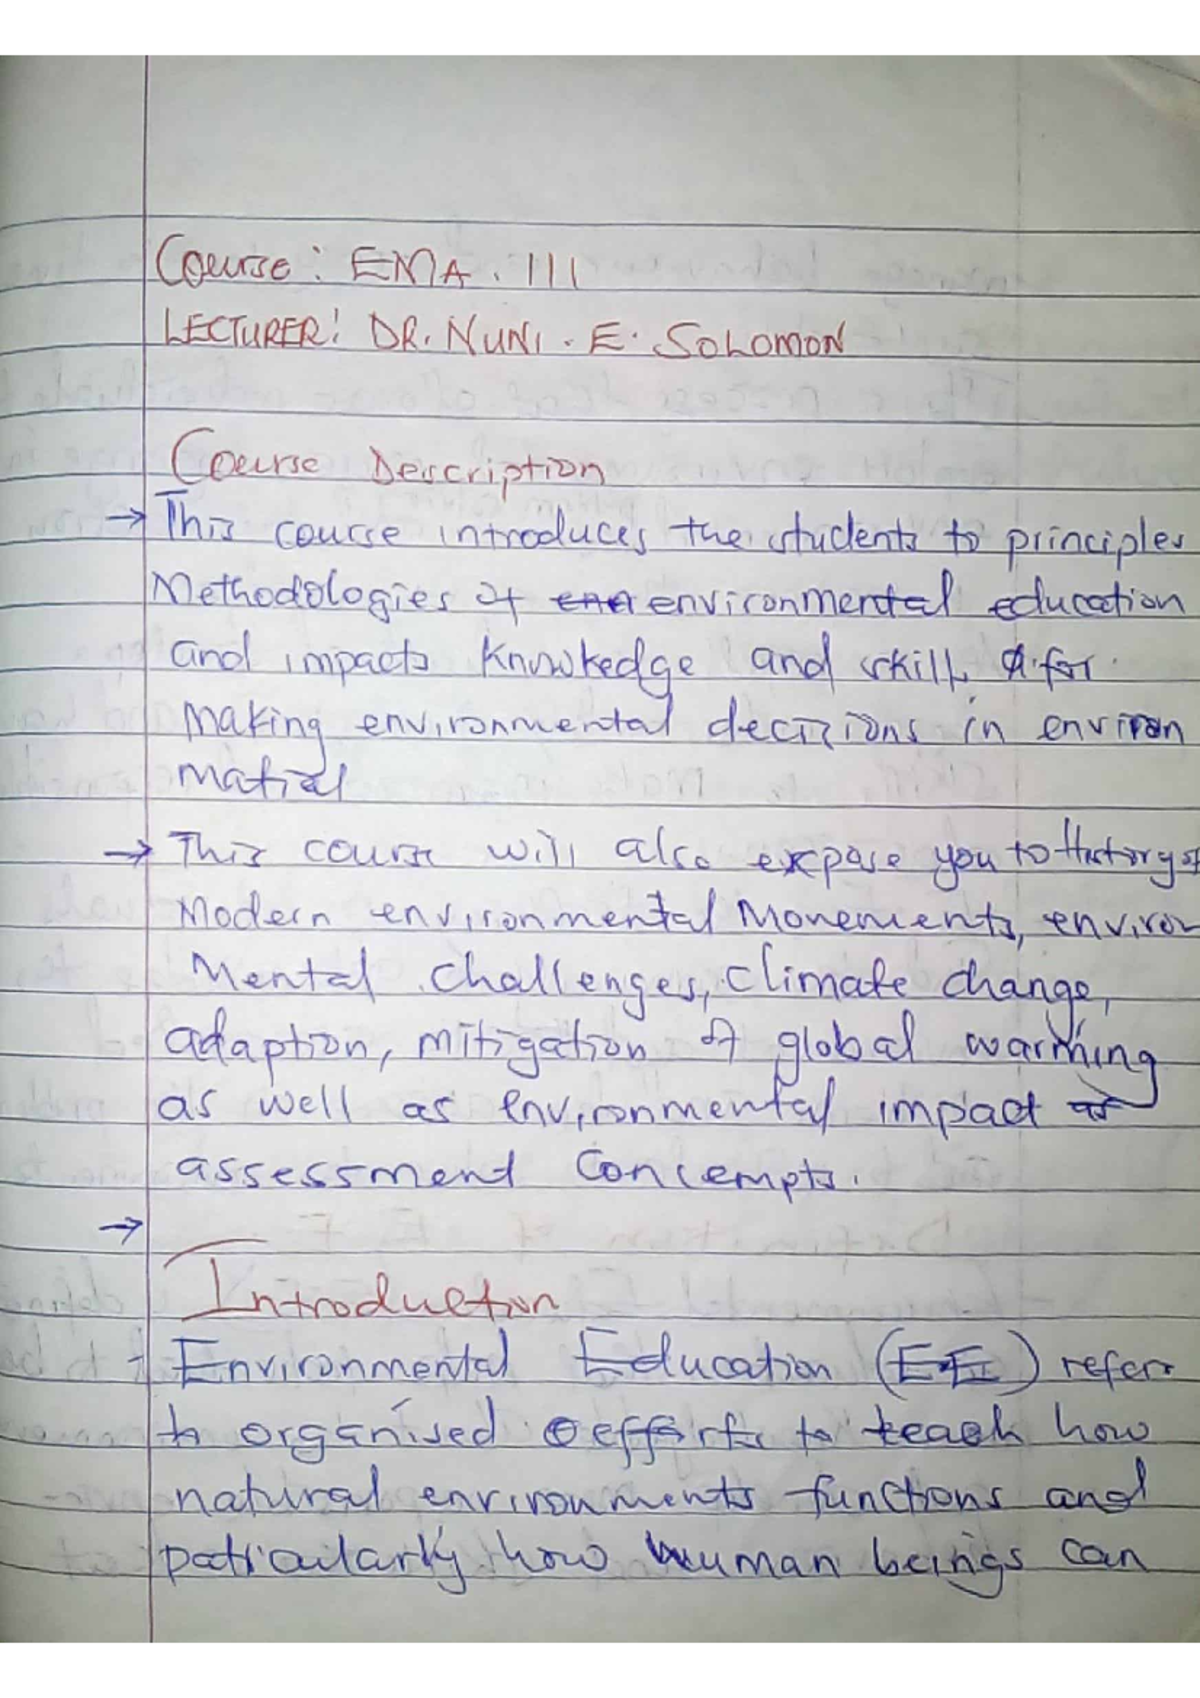 Course: EMA. 111
LECTURER: DR. NUNI. E. SOLOMON
Course Description
→ This course introduces the students to principles
Methodologies of environmental education
and impacts knowkedge and skills for
making environmental decisions in environ
matial
→ This course will also expose you to History of
Modern environmental Monements, environ
mental challenges, climate change,
adaption, mitigation of global warming
as well as environmental impact
assessmend Concempts.
→
Introduction
- Environmental Education (EE) refers
to organised efforts to teach how
natural environments functions and
paticularly how human beings can